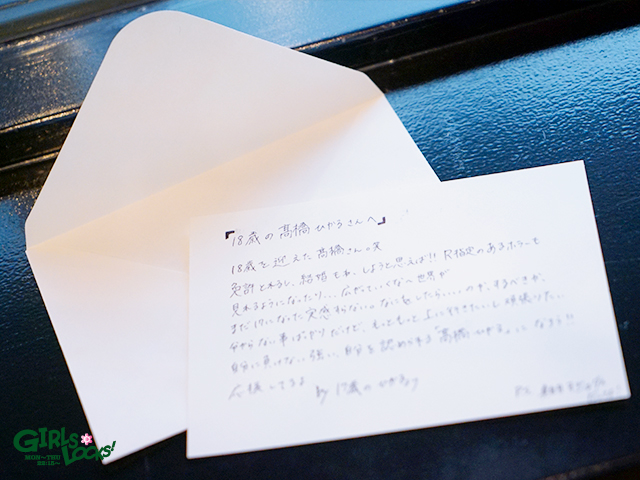 『18歳の髙橋ひかるさんへ』
18歳を迎えた髙橋さん。笑
免許とれるし、結婚もね、しようと思えば!! R指定のあるホラーも
見れるようになったり... 広がっていくな〜世界が
まだ17になった実感わらない。なにをしたらいいのか、するべきか、
分からない事ばっかりだけど、もっともっと上にいきたいし頑張りたい。
自分に負けない強い、自分を認められる「髙橋ひかる」になろう!!
応援してるよ by 17歳のひかるっ
P.S.
GIRLS LOCKS!
MON〜THU
22:15〜